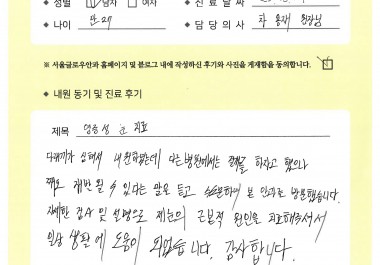 ◆ 성별 남자 여자 ◆ 진료날짜
◆ 나이 만 29 ◆ 담당의사 차흥재 원장님
※ 서울글로우안과 홈페이지 및 블로그 내에 작성하신 후기와 사진을 게재함을 동의합니다.
◆ 내원 동기 및 진료 후기
제목 : 염증성 눈 치료
다래끼가 심해서 내원하였는데 다른병원에서는 째를 하라고 했으나
째도 재발 될 수 있다는 말을 듣고 본 안과를 방문했습니다.
자세한 검사 및 설명으로 제눈의 근본적 원인을 치료해주셔서
일상 생활에 도움이 되었습니다. 감사합니다.